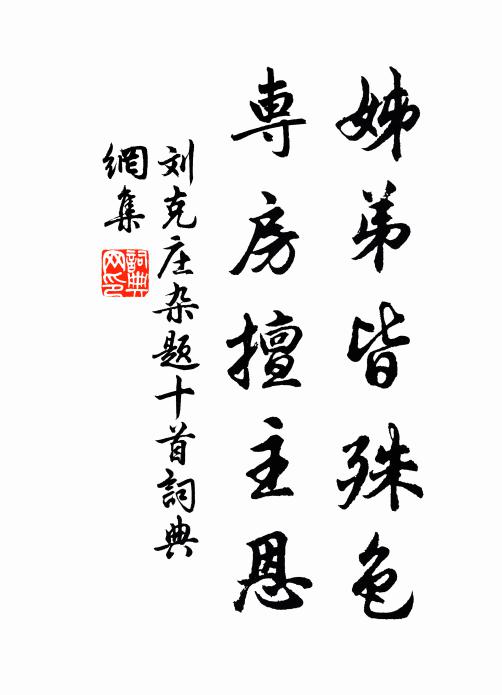 姊弟皆殊色
専房擅主恩
刘克庄杂题十首詞典
網集
詞典网印